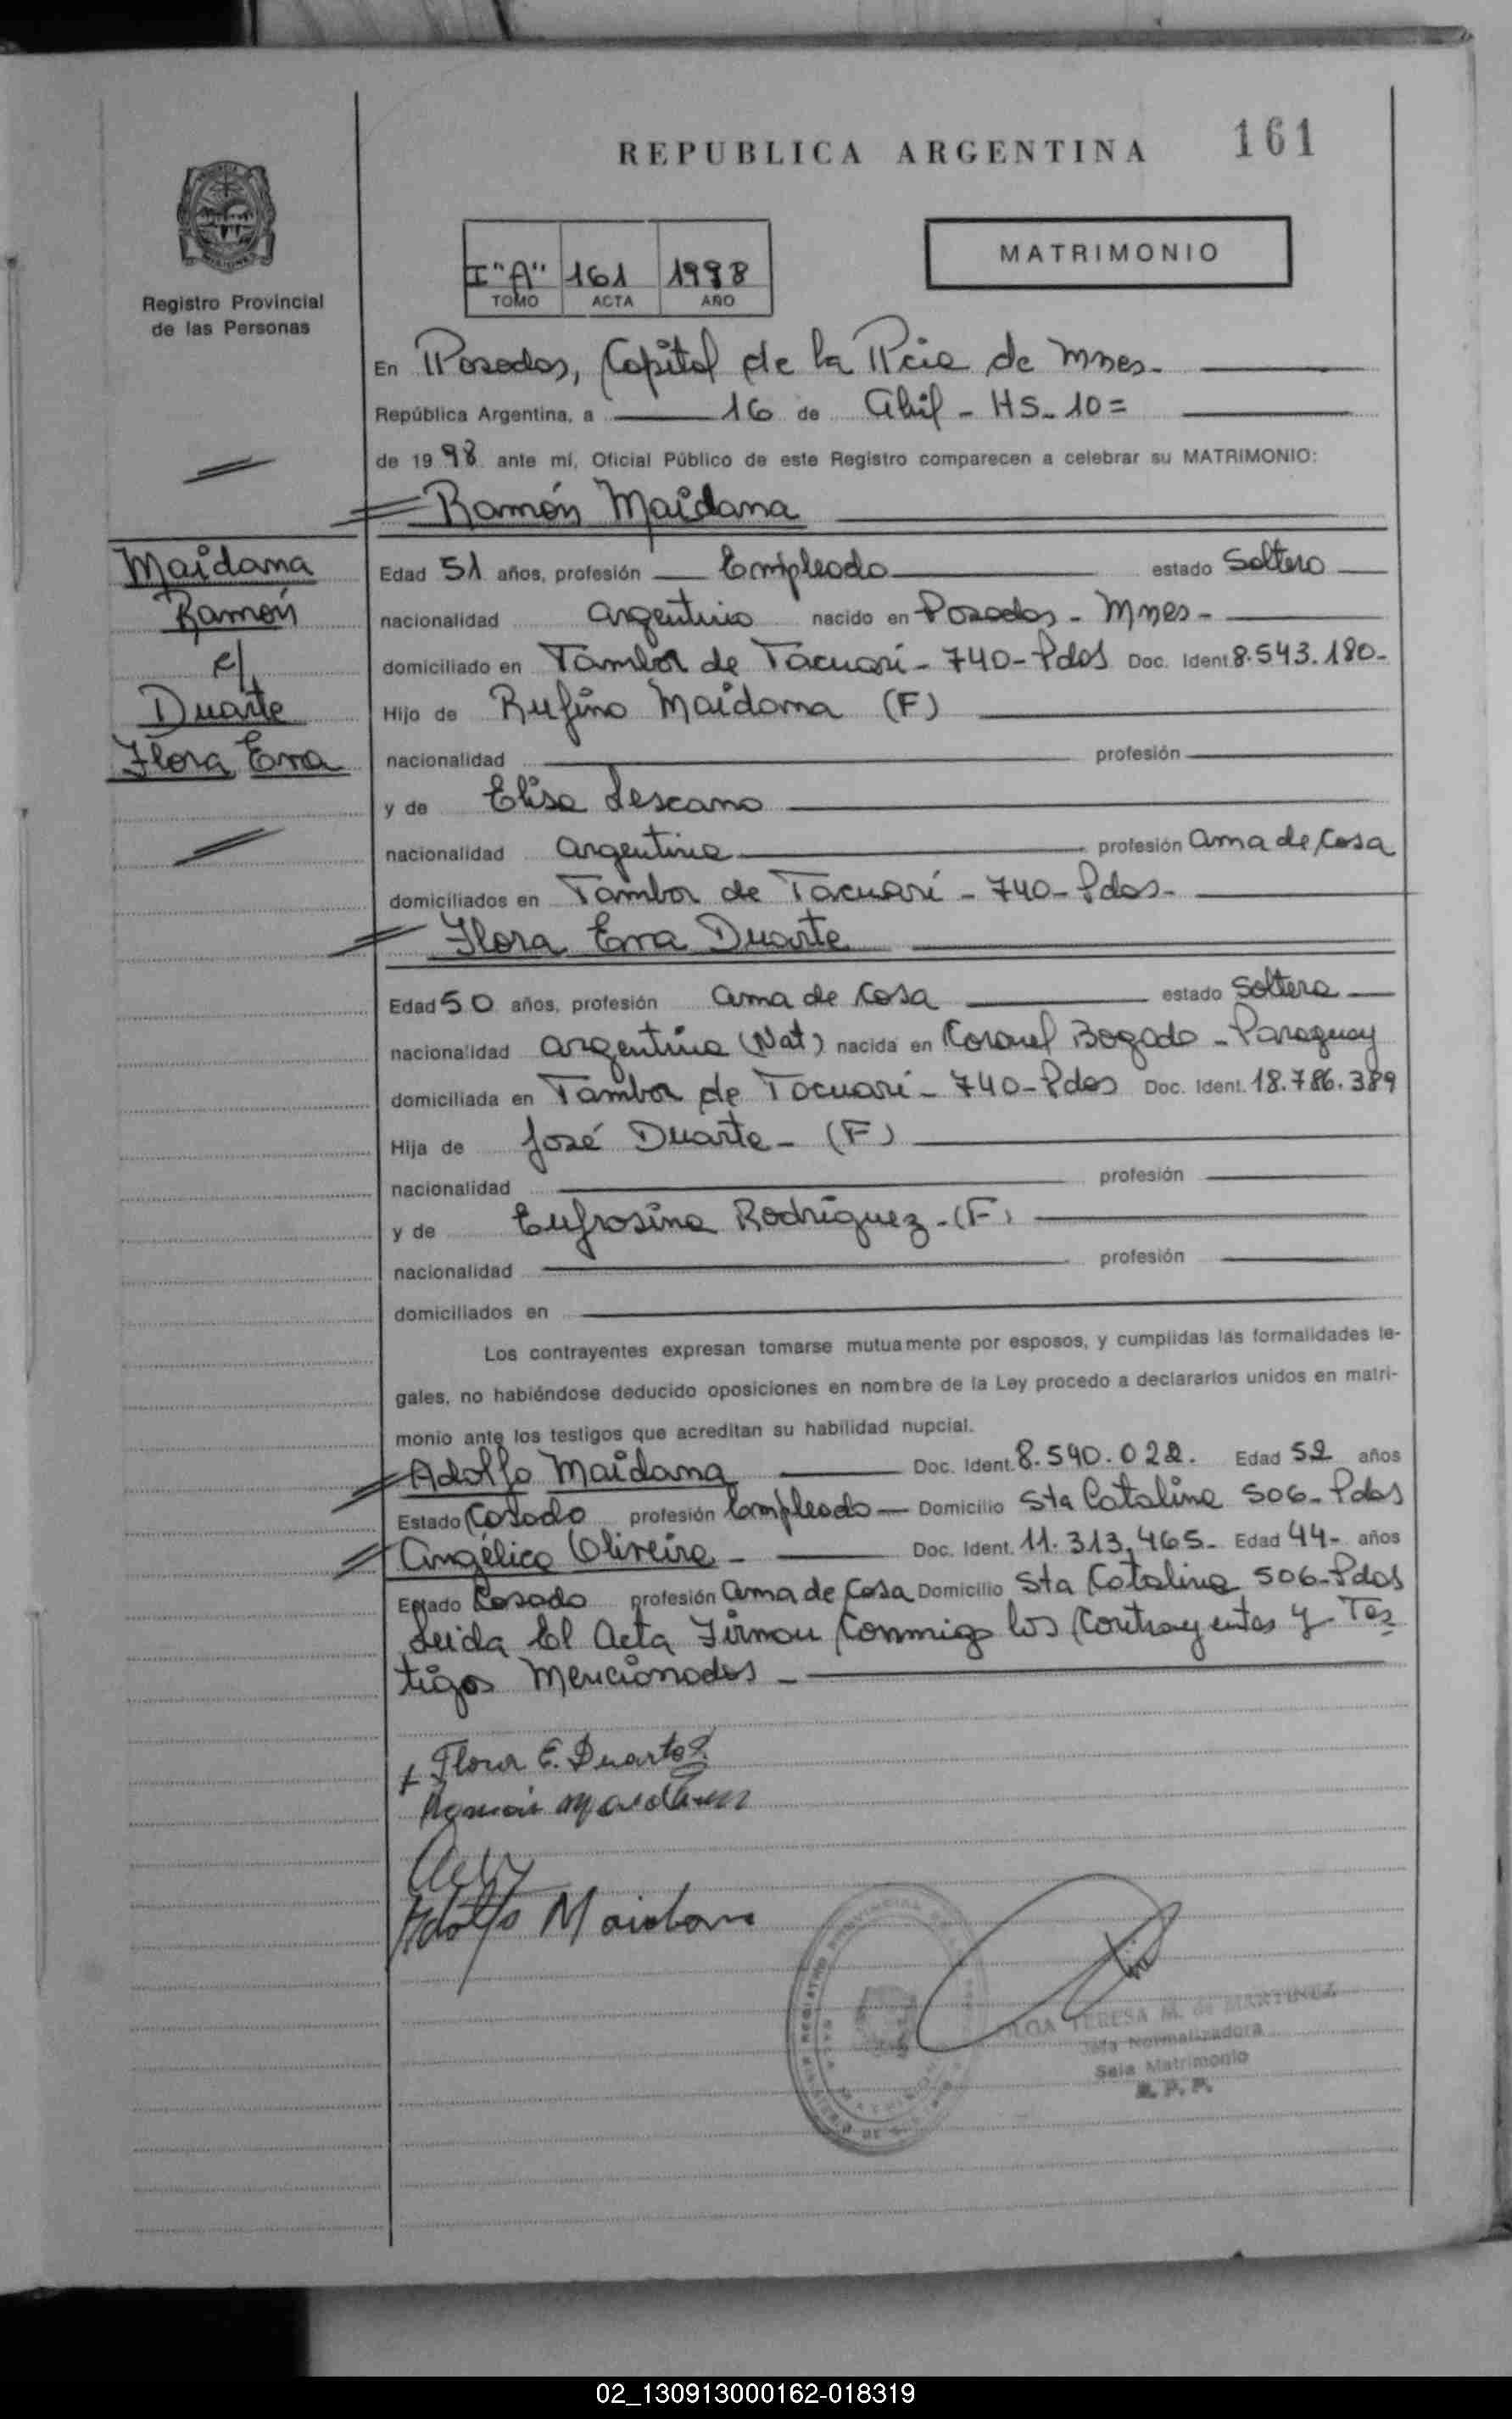 REPUBLICA ARGENTINA 161
MATRIMONIO
I "A" 161 1998
TOMO ACTA AÑO
Registro Provincial
de las Personas
En Posadas, Capital de la Pcia de Mnes-
República Argentina, a 16 de Abril - HS- 10=
de 1998 ante mí, Oficial Público de este Registro comparecen a celebrar su MATRIMONIO:
Ramón Maidana
Maidana
Ramón
c/
Duarte
Flora Ema
Edad 51 años, profesión Empleado estado Soltero
nacionalidad Argentino nacido en Posadas - Mnes-
domiciliado en Tambor de Tacuarí - 740 - Pdas Doc. Ident 8.543.180-
Hijo de Rufino Maidana (F)
nacionalidad profesión
y de Elisa Lescano
nacionalidad Argentina profesión Ama de Casa
domiciliados en Tambor de Tacuarí - 740 - Pdas-
Flora Ema Duarte
Edad 50 años, profesión Ama de Casa estado Soltera
nacionalidad Argentina (Nat) nacida en Coronel Bogado - Paraguay
domiciliada en Tambor de Tacuarí - 740 - Pdas Doc. Ident. 18.786.389
Hija de José Duarte - (F)
nacionalidad profesión
y de Eufrosina Rodríguez - (F)
nacionalidad profesión
domiciliados en
Los contrayentes expresan tomarse mutuamente por esposos, y cumplidas las formalidades le-
gales, no habiéndose deducido oposiciones en nombre de la Ley procedo a declararlos unidos en matri-
monio ante los testigos que acreditan su habilidad nupcial.
Adolfo Maidana Doc. Ident. 8.540.022. Edad 52 años
Estado Casado profesión Empleado Domicilio Sta Catalina 506 - Pdas
Angélica Oliveira - Doc. Ident. 11.313.465- Edad 44- años
Estado Casado profesión Ama de Casa Domicilio Sta Catalina 506 - Pdas
Leida El Acta Firman Conmigo los Contrayentes y Tes
tigos Mencionados -
Flora E. Duarte
Adolfo Maidana
TERESA M. de MARTINEZ
Jefa Normalizadora
Sala Matrimonio
R. P. P.
02_130913000162-018319